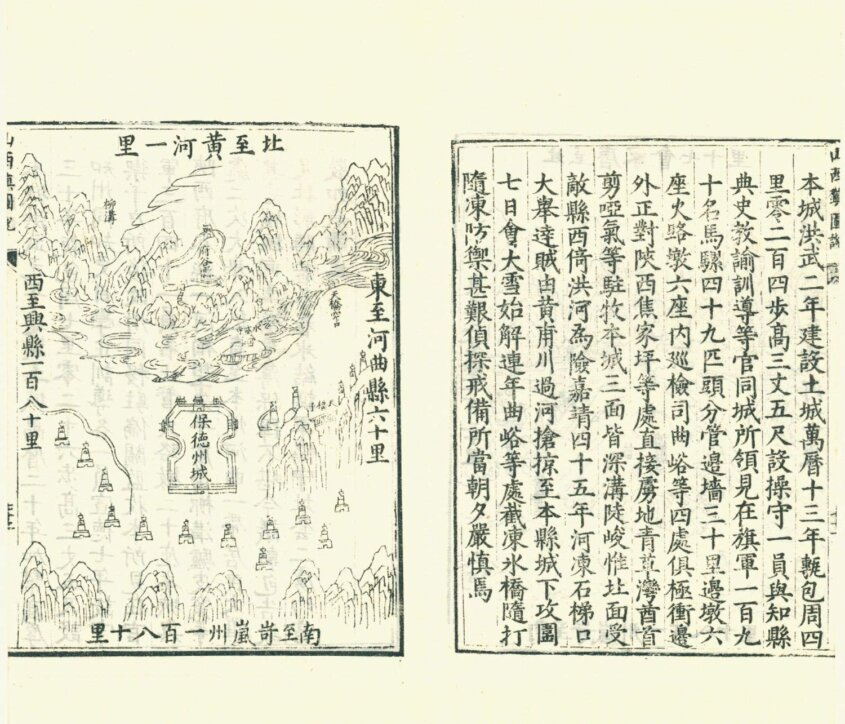 本城洪武二年建設土城萬曆十三年甎包周四
里零二百四步高三丈五尺設操守一員與知縣
典史教諭訓導等官同城所領見在旗軍一百九
十名馬騾四十九匹頭分管邊墻三十里邊墩六
座火路墩六座內巡檢司曲峪等四處俱極衝邊
外正對陝西焦家坪等處直接虜地青草灣酋首
剪啞氣等駐牧本城三面皆深溝陡峻惟北面受
敵縣西倚洪河為險嘉靖四十五年河凍石梯口
大舉達賊由黃甫川過河搶掠至本縣城下攻圍
七日會大雪始解連年曲峪等處截凍氷橋隨打
隨凍防禦甚艱偵探戒備所當朝夕嚴慎焉
北至黃河一里
東至河曲縣六十里
天橋口
府谷
保德州城
西至興縣一百八十里
南至岢嵐州一百八十里